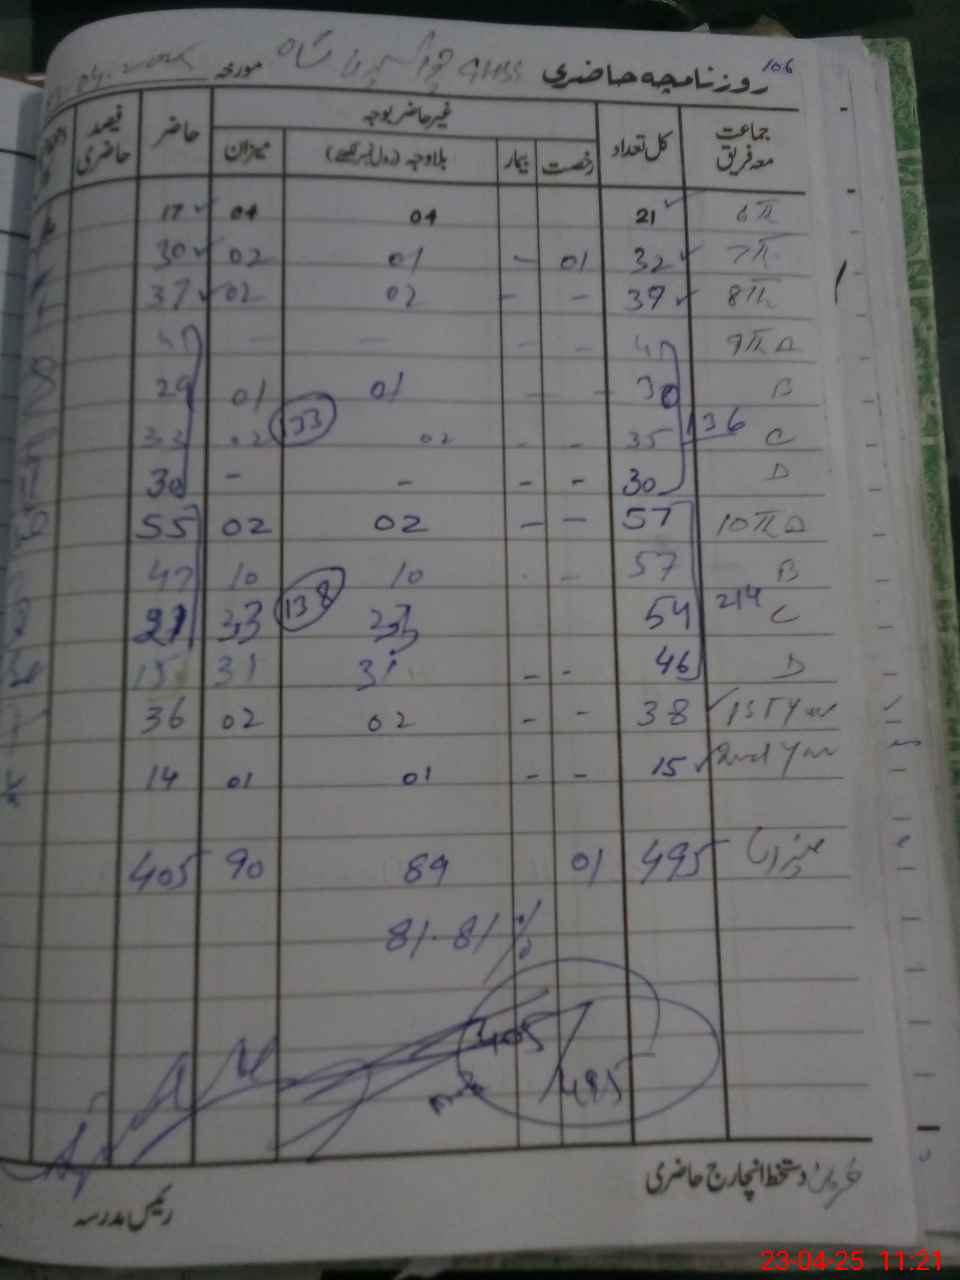 106
روزنامچہ حاضری GHSS مورخہ
جماعت معہ فریق کل تعداد غیر حاضر بوجہ حاضر فیصد حاضری
رخصت بیمار بلاوجہ (رول نمبر لکھیے) میزان
6th 21 04 04 17
7th 32 01 - 01 02 30
8th 39 - - 02 02 37
9th A 41 - - - - 41
B 30 - - 01 01 29
C 35 - - 02 02 33
136
133
D 30 - - - - 30
10th A 57 - - 02 02 55
B 57 - - 10 10 47
C 54 33 33 21
214
138
D 46 - - 31 31 15
1st Year 38 - - 02 02 36
2nd Year 15 - - 01 01 14
میزان 495 01 89 90 405
81.81%
405/495
دستخط انچارج حاضری
رئیس مدرسہ
23-04-25 11:21